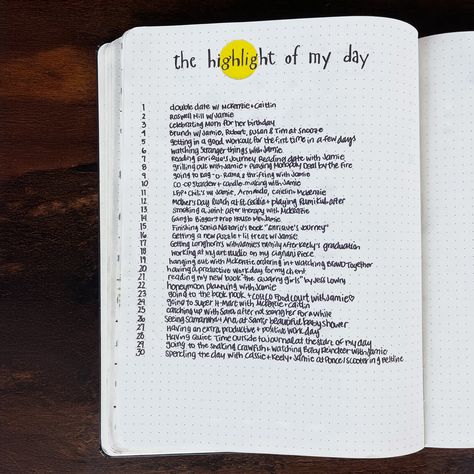 the highlight of my day
1 double date w/ McKenzie + Caitlin
2 Roswell Mill w/ Jamie
3 celebrating Mom for her birthday
4 Brunch w/ Jamie, Robert, Susan & Tim at Snooze
5 getting in a good workout for the first time in a few days
6 watching Stranger Things with Jamie
7 Reading Enrique's Journey Reading date with Jamie
8 grilling out with Jamie + Playing Monopoly Deal by the fire
9 going to Rag-O-Rama & thrifting with Jamie
10 co-op Stardew + candle-making with Jamie
11 w/ Jamie, Armando, Caitlin + McKenzie
12 Mother's Day Lunch at St. Cecilia + playing Rumikub after
13 smoking a joint after therapy with McKenzie
14 Google Biggest Prop House w/ Jamie
15 Finishing Sonia Nazario's book "Enrique's Journey"
16 Getting a new puzzle + lil treat w/ Jamie
17 Getting Longhorn's with Jamie's family after Keely's graduation
18 working at my art studio on my piece
19 hanging out with McKenzie ordering in + watching BRAVO Together
20 having a productive work day for my client
21 reading my new book "The Quarry Girls" by Jess Lowry
22 honeymoon planning with Jamie
23 going to the book nook + Food court with Jamie♡
24 going to Super H-Mart with McKenzie + Caitlin
25 catching up with Sara after not seeing her for a while
26 seeing Samantha + Ana at Sams' beautiful baby shower
27 Having an extra productive + positive work day
28 Having Quiet Time outside to journal at the start of my day
29 going to the Shaking Crawfish + watching Baby Reindeer with Jamie
30 spending the day with Cassie + Keely + Jamie at Ponce + scootering Beltline